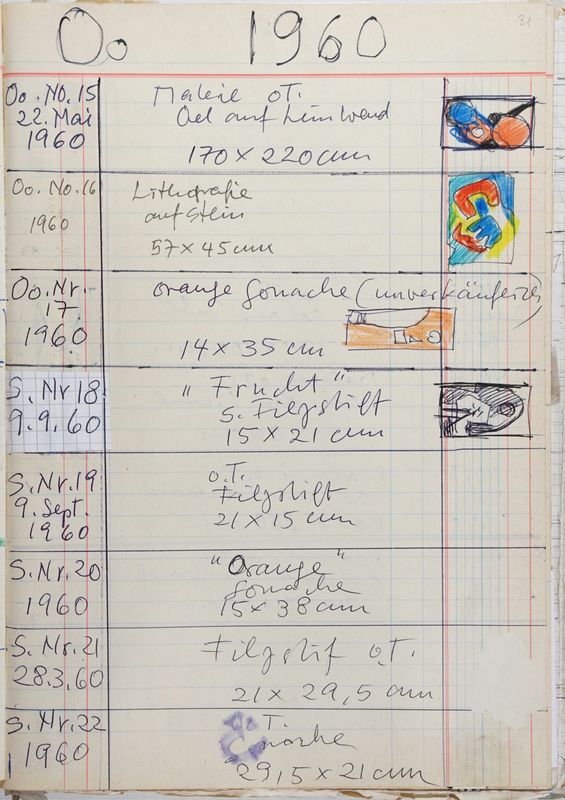 Oo 1960
31
Oo. No. 15
22. Mai
1960
Malerie oT.
Oel auf Leinwand
170 x 220 cm
Oo. No. 16
1960
Lithografie
auf Stein
57 x 45 cm
Oo. Nr.
17
1960
orange Gouache (unverkäuflich)
14 x 35 cm
S. Nr 18
9.9.60
"Frucht"
S. Filzstift
15 x 21 cm
S. Nr. 19
9. Sept.
1960
o.T.
Filzstift
21 x 15 cm
S. Nr. 20
1960
"Orange"
Gouache
15 x 38 cm
S. Nr. 21
28.3.60
Filzstif o.T.
21 x 29,5 cm
S. Nr. 22
1960
T.
29,5 x 21 cm